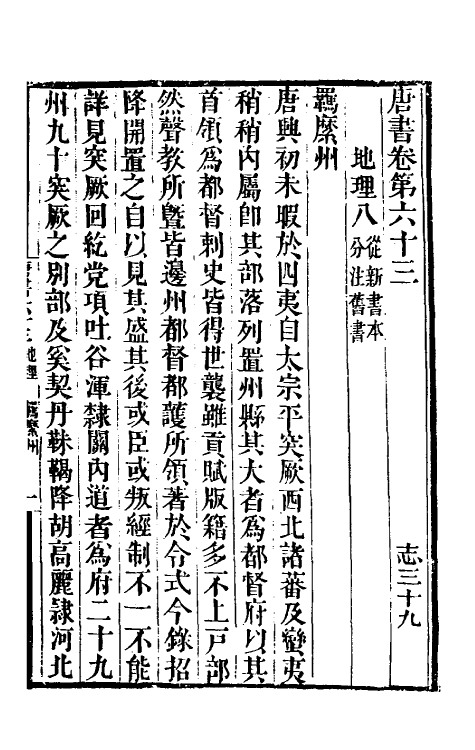 唐書卷第六十三 志三十九
地理八 從新書本
分注舊書
羈縻州
唐興初未暇於四夷自太宗平突厥西北諸蕃及蠻夷
稍稍內屬卽其部落列置州縣其大者爲都督府以其
首領爲都督刺史皆得世襲雖貢賦版籍多不上戸部
然聲教所曁皆邊州都督都護所領著於令式今錄招
降開置之自以見其盛其後或臣或叛經制不一不能
詳見突厥回紇党項吐谷渾隸關內道者爲府二十九
州九十突厥之別部及奚契丹靺鞨降胡高麗隸河北
地理 羈縻州 一